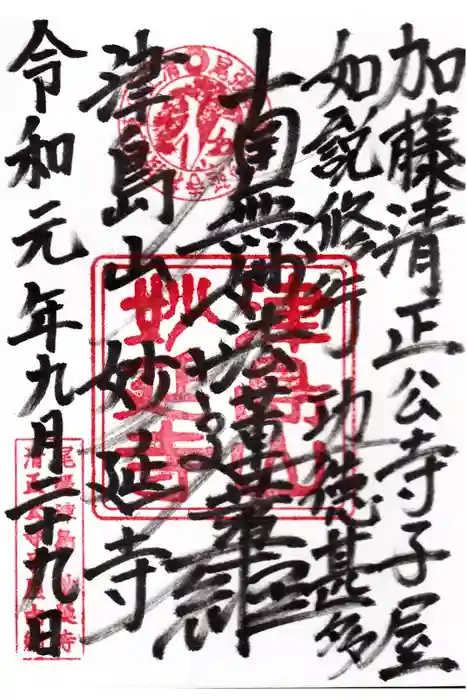 加藤清正公寺子屋
如説修行 功徳甚多
南無妙法蓮華経
津島山 妙延寺
令和元年九月二十九日
津島山
妙延寺